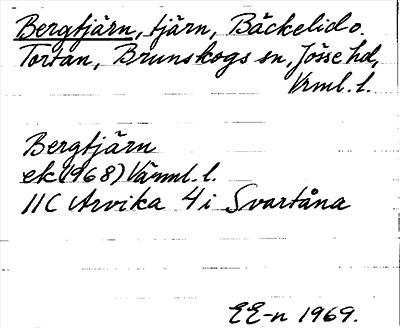 Bergtjärn, tjärn, Bäckelid o.
Tortan, Brunskogs sn, Jösse hd,
Vrml. l.
Bergtjärn
ek (1968) Värml. l.
11C Arvika 4 i Svartåna
EE-n 1969.